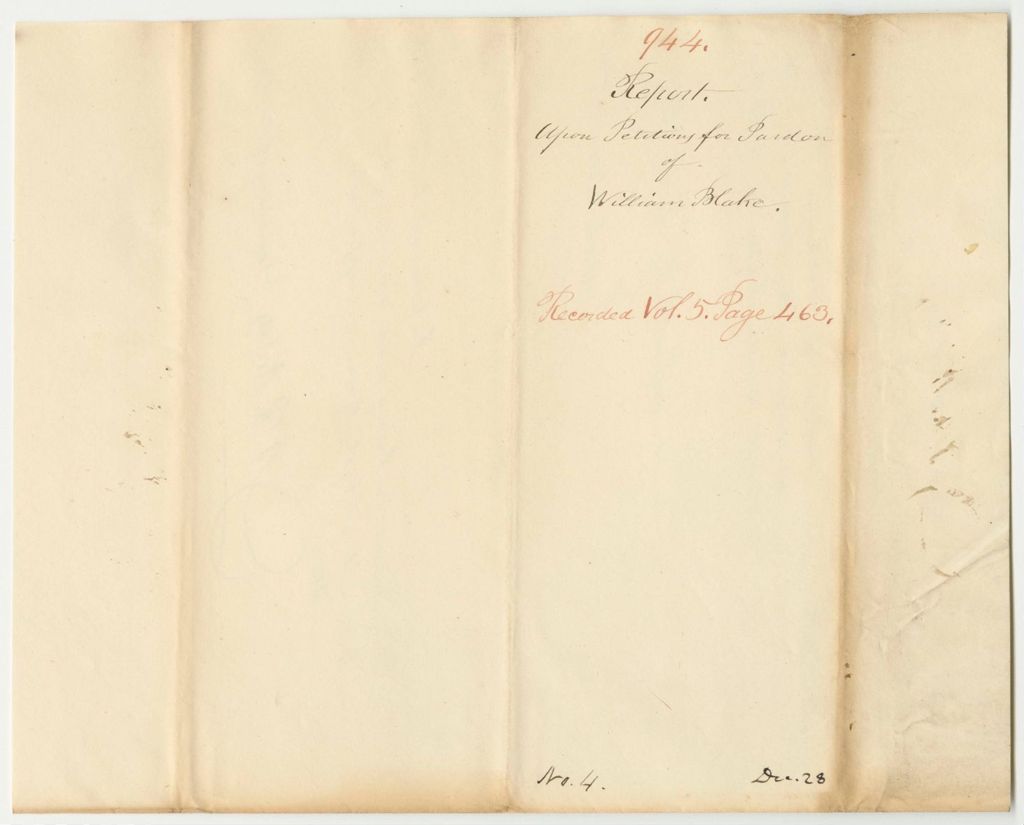 944.
Report.
Upon Petitions for Pardon
of
William Blake.
Recorded Vol. 5. Page 463.
No. 4.
Dec. 28